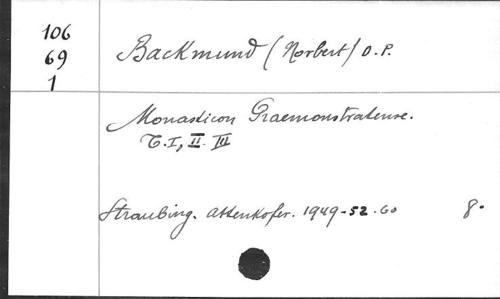 106
69
1
Backmund (Norbert) O.P.
Monasticon Praemonstratense.
T. I, II. III
Straubing. Attenkofer. 1949-52.60 8.